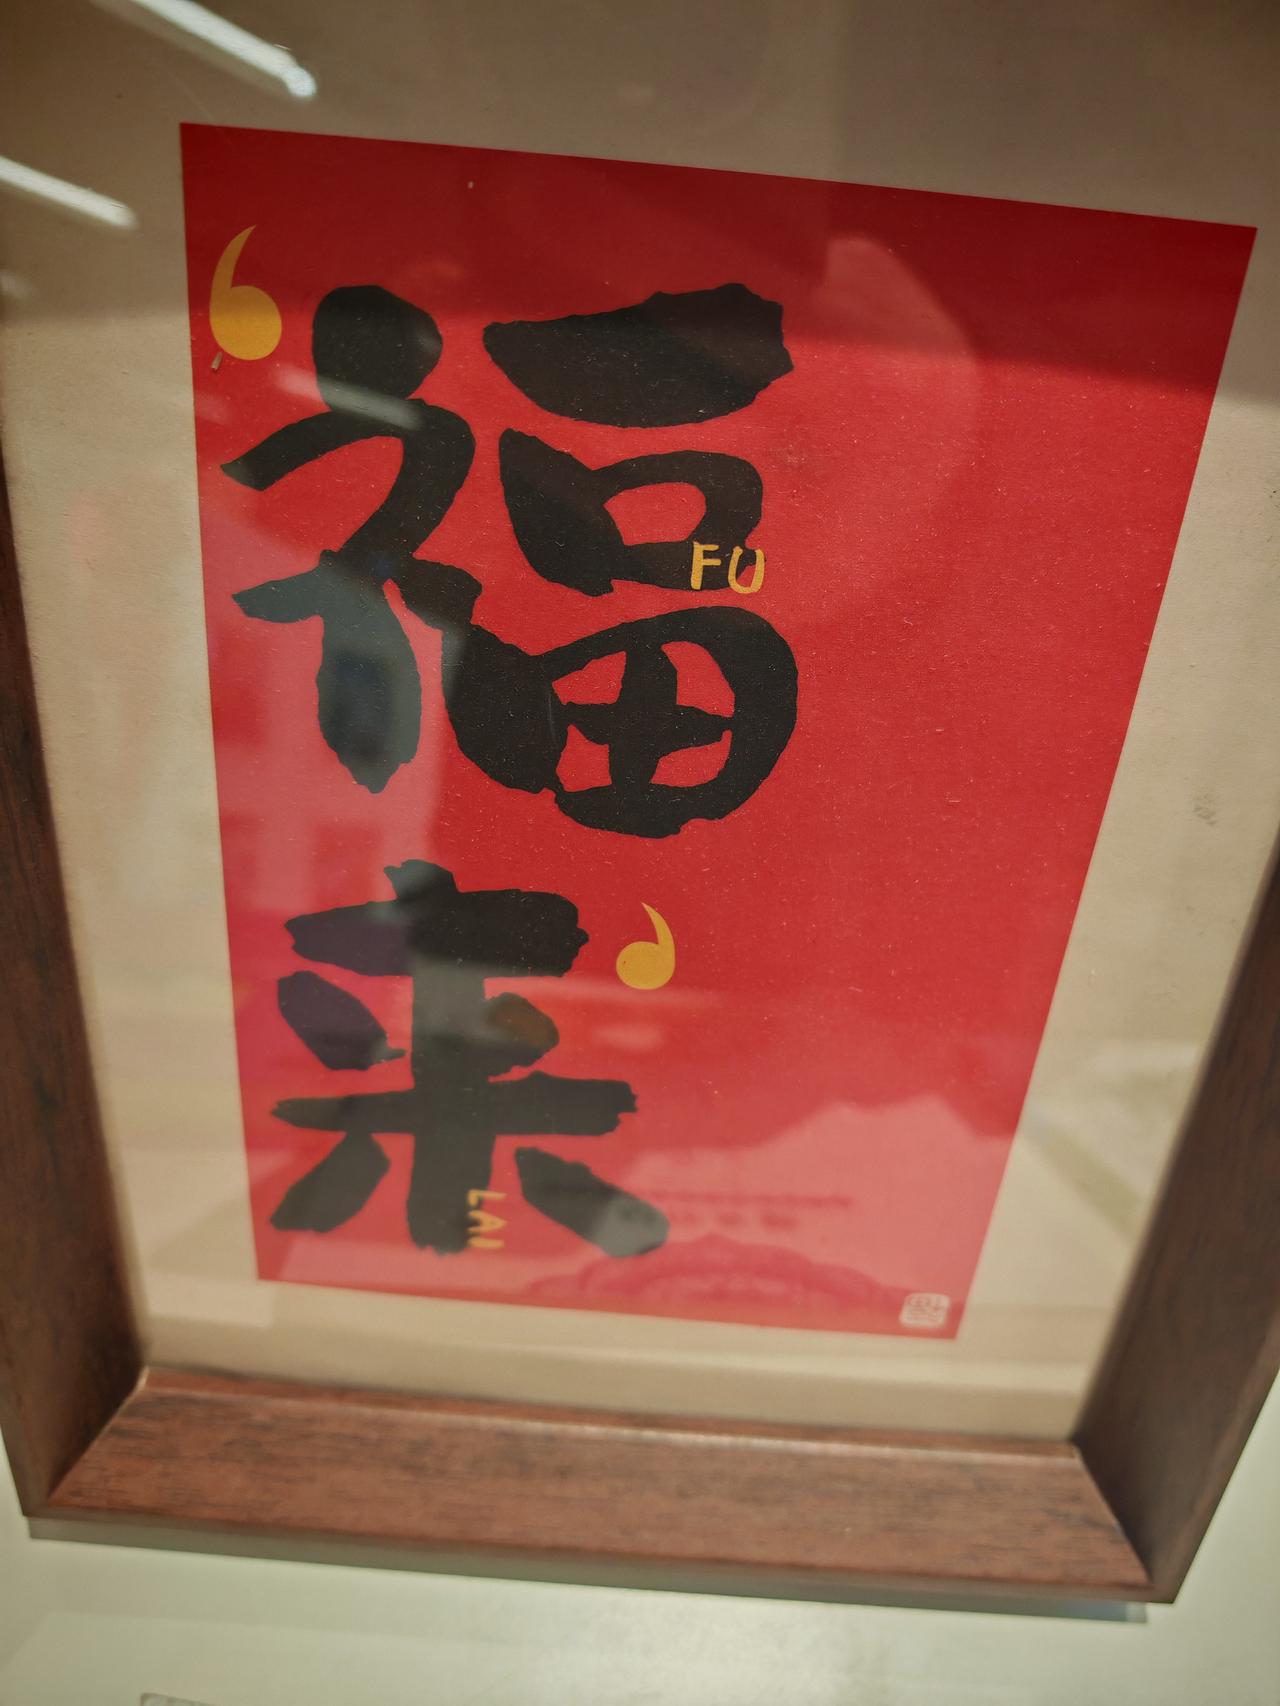 ‘福
FU
来’
LAI